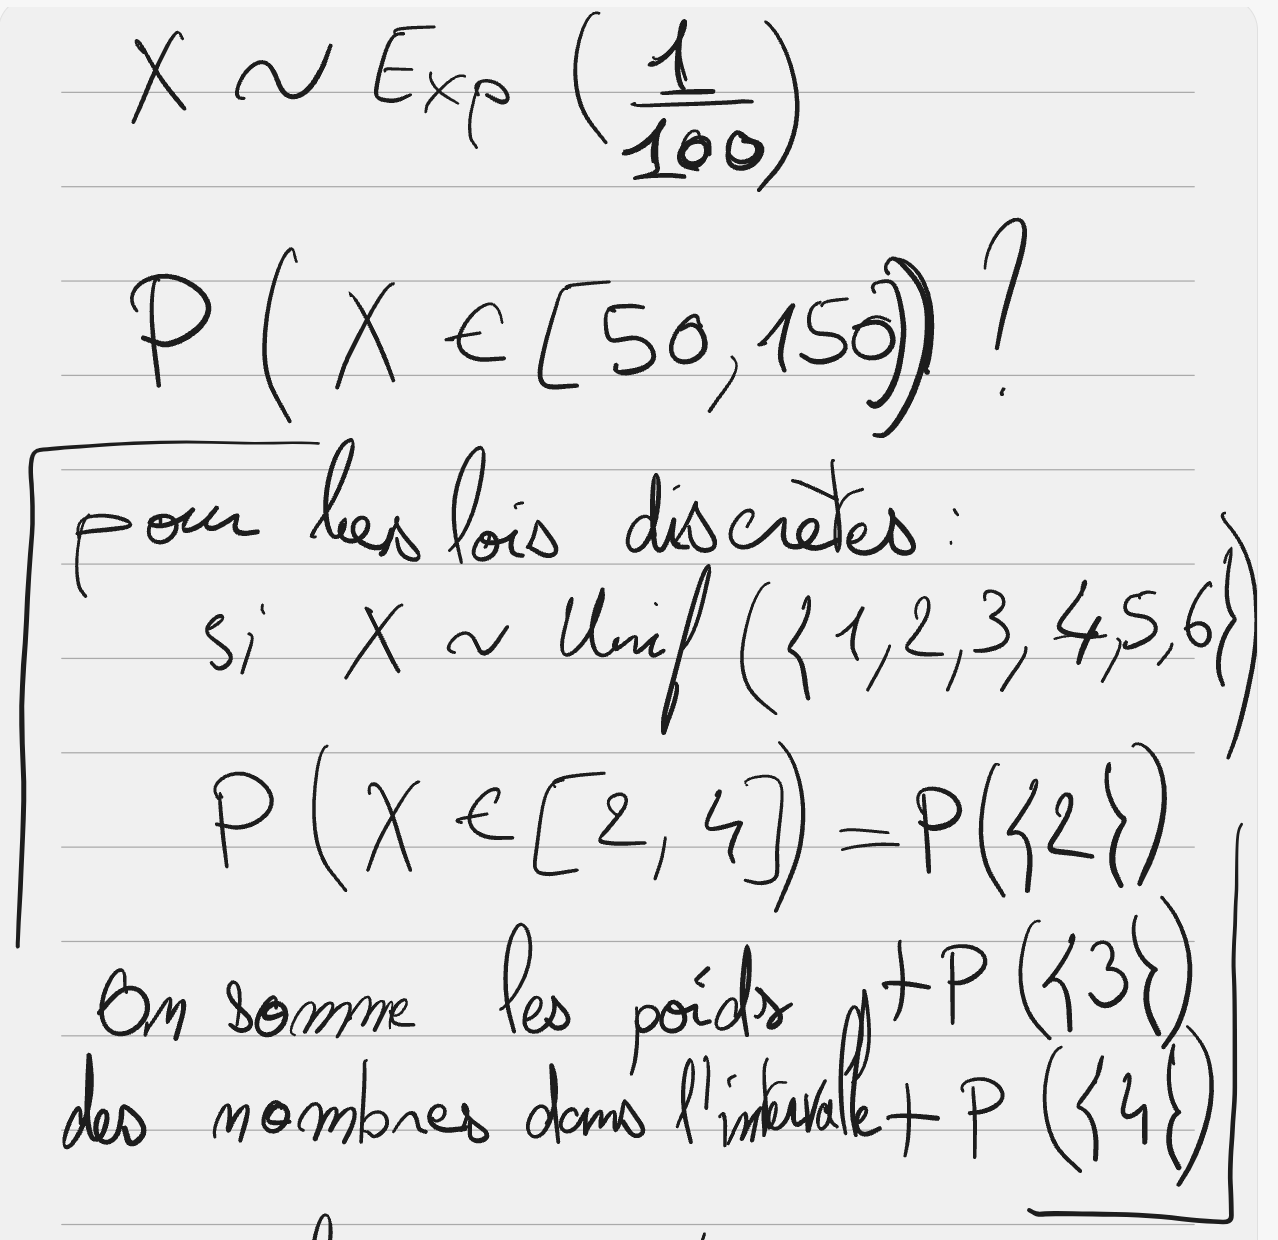 X ~ Exp (1/100)
P(X ∈ [50,150)) ?
pour les lois discrètes :
si X ~ Unif ({1,2,3,4,5,6})
P(X ∈ [2,4]) = P({2})
+ P({3})
On somme les poids
des nombres dans l'intervalle + P({4})